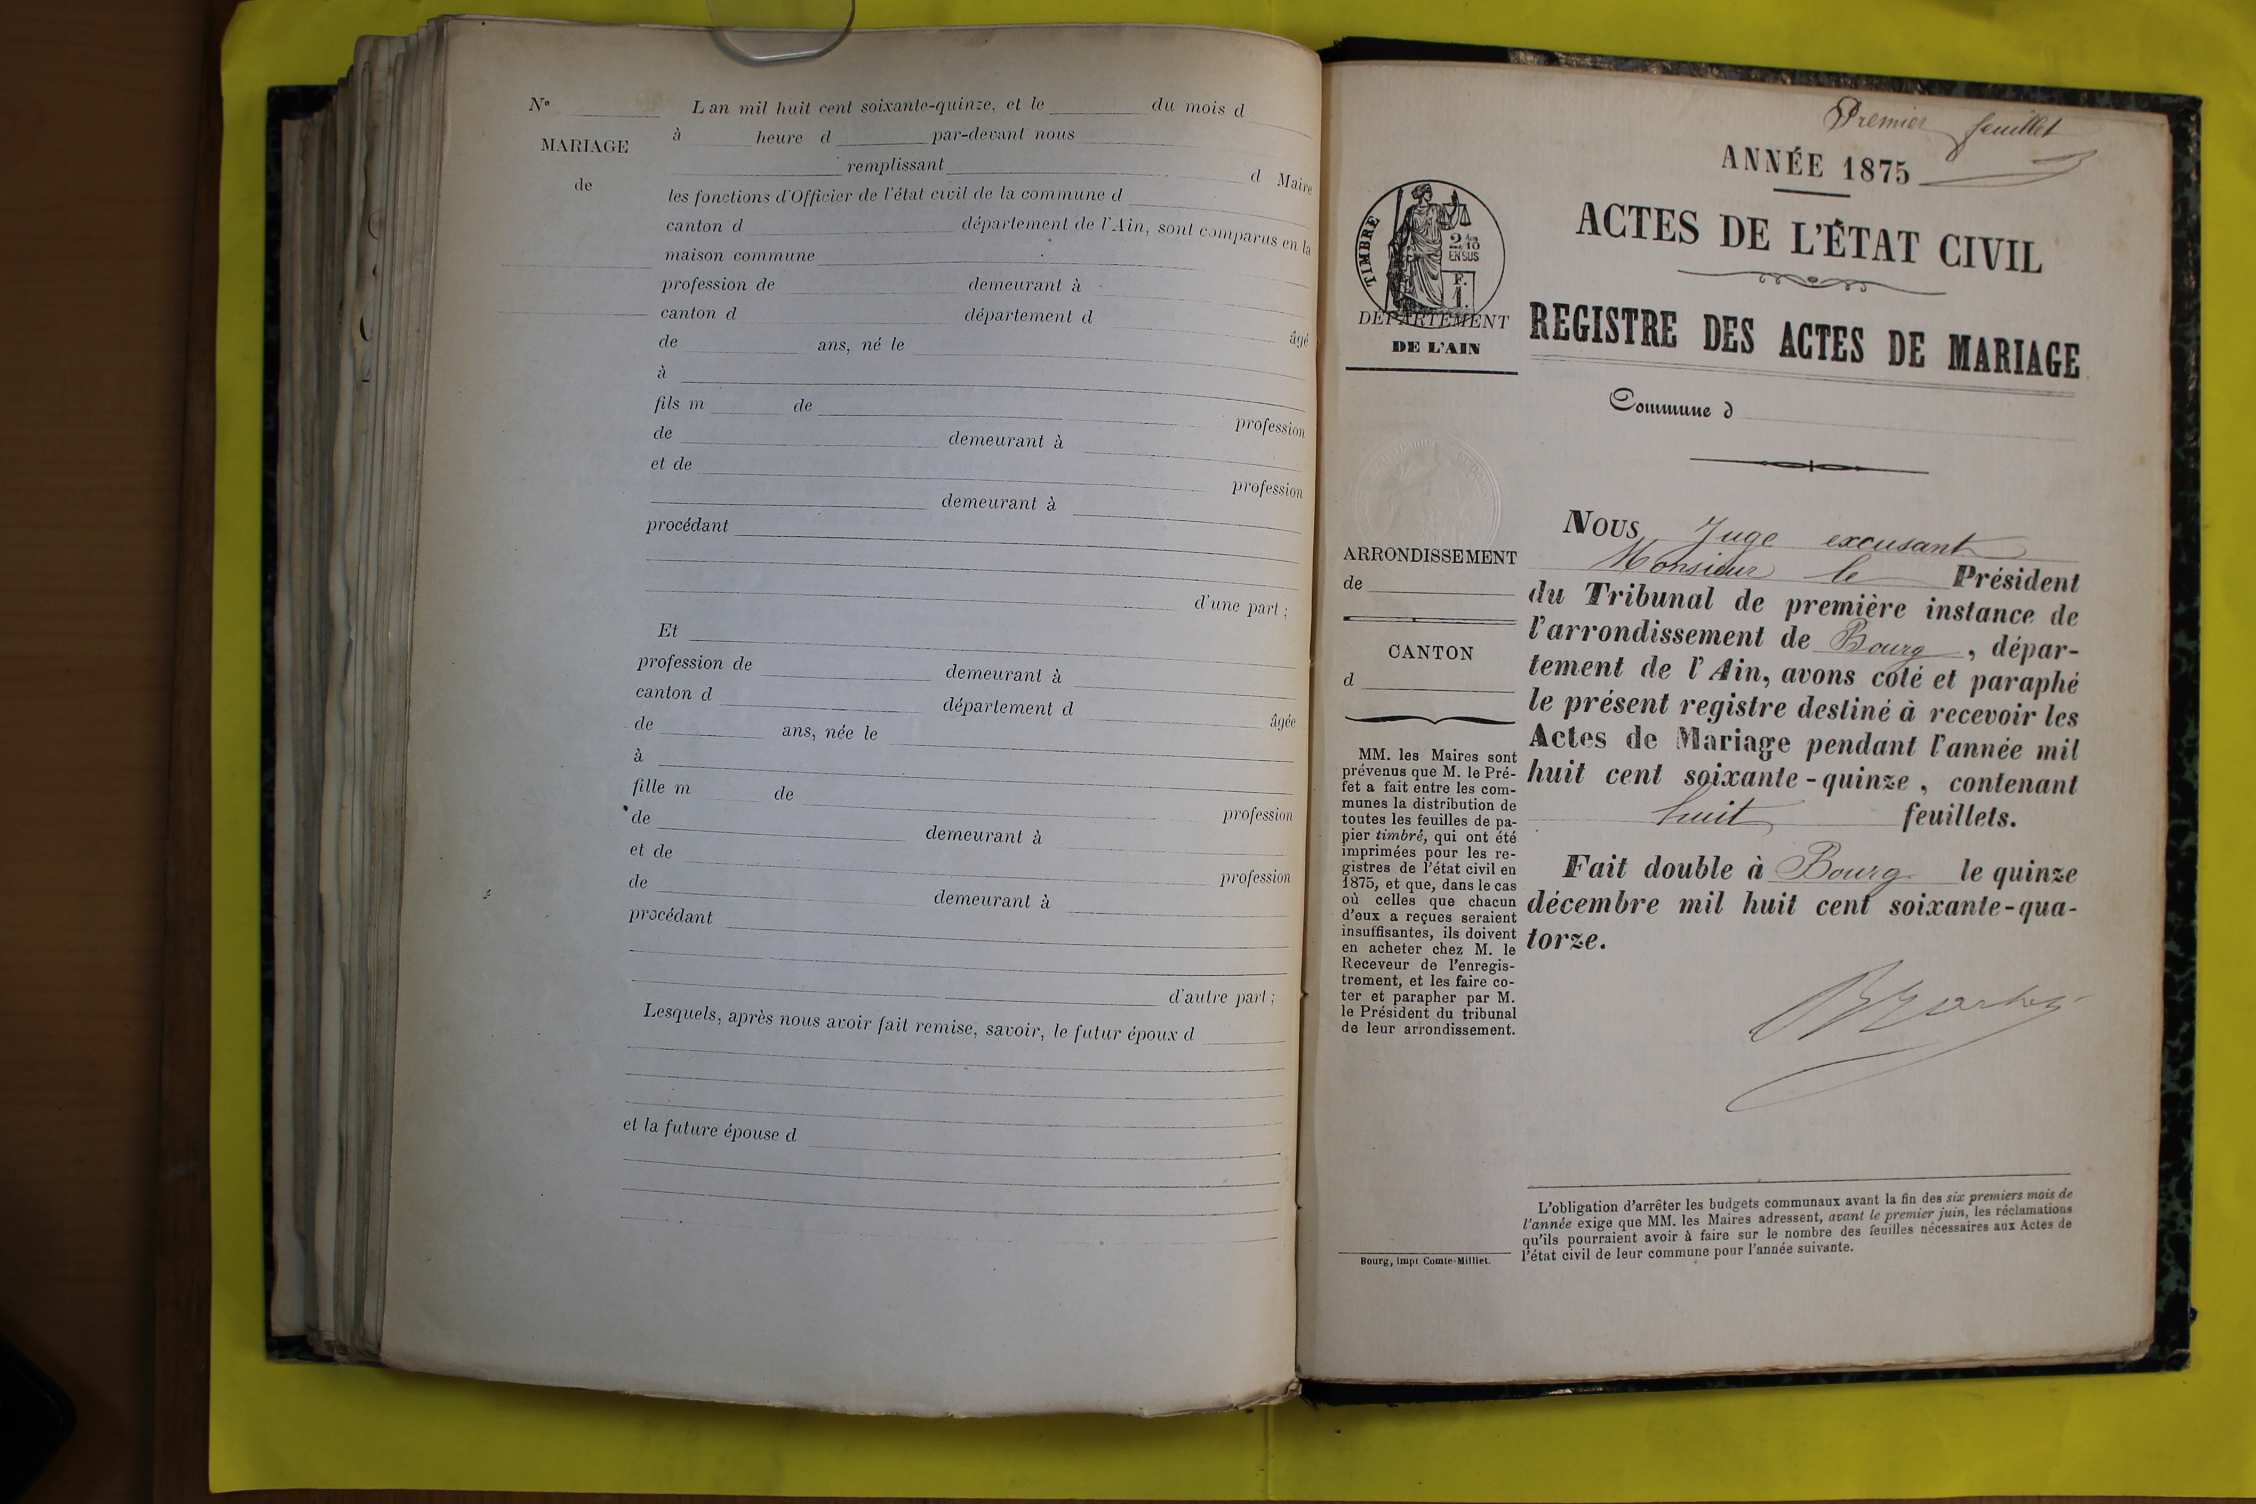 N° L'an mil huit cent soixante-quinze, et le du mois d
MARIAGE
de
à heure d par-devant nous
remplissant d Maire
les fonctions d'Officier de l'état civil de la commune d
canton d département de l'Ain, sont comparus en la
maison commune
profession de demeurant à
canton d département d âgé
de ans, né le
à
fils m de profession
de demeurant à
et de profession
demeurant à
procédant
d'une part;
Et
profession de demeurant à
canton d département d âgée
de ans, née le
à
fille m de profession
de demeurant à
et de profession
de demeurant à
procédant
d'autre part;
Lesquels, après nous avoir fait remise, savoir, le futur époux d
et la future épouse d
Premier feuillet
ANNÉE 1875
ACTES DE L'ÉTAT CIVIL
REGISTRE DES ACTES DE MARIAGE
Commune d
TIMBRE
2 10
EN SUS
F.
1.
DÉPARTEMENT
DE L'AIN
ARRONDISSEMENT
de
CANTON
d
MM. les Maires sont
prévenus que M. le Pré-
fet a fait entre les com-
munes la distribution de
toutes les feuilles de pa-
pier timbré, qui ont été
imprimées pour les re-
gistres de l'état civil en
1875, et que, dans le cas
où celles que chacun
d'eux a reçues seraient
insuffisantes, ils doivent
en acheter chez M. le
Receveur de l'enregis-
trement, et les faire co-
ter et parapher par M.
le Président du tribunal
de leur arrondissement.
Bourg, impr Comte-Milliet.
Nous Juge excusant
Monsieur le Président
du Tribunal de première instance de
l'arrondissement de Bourg, dépar-
tement de l'Ain, avons coté et paraphé
le présent registre destiné à recevoir les
Actes de Mariage pendant l'année mil
huit cent soixante-quinze, contenant
huit feuillets.
Fait double à Bourg le quinze
décembre mil huit cent soixante-qua-
torze.
L'obligation d'arrêter les budgets communaux avant la fin des six premiers mois de
l'année exige que MM. les Maires adressent, avant le premier juin, les réclamations
qu'ils pourraient avoir à faire sur le nombre des feuilles nécessaires aux Actes de
l'état civil de leur commune pour l'année suivante.